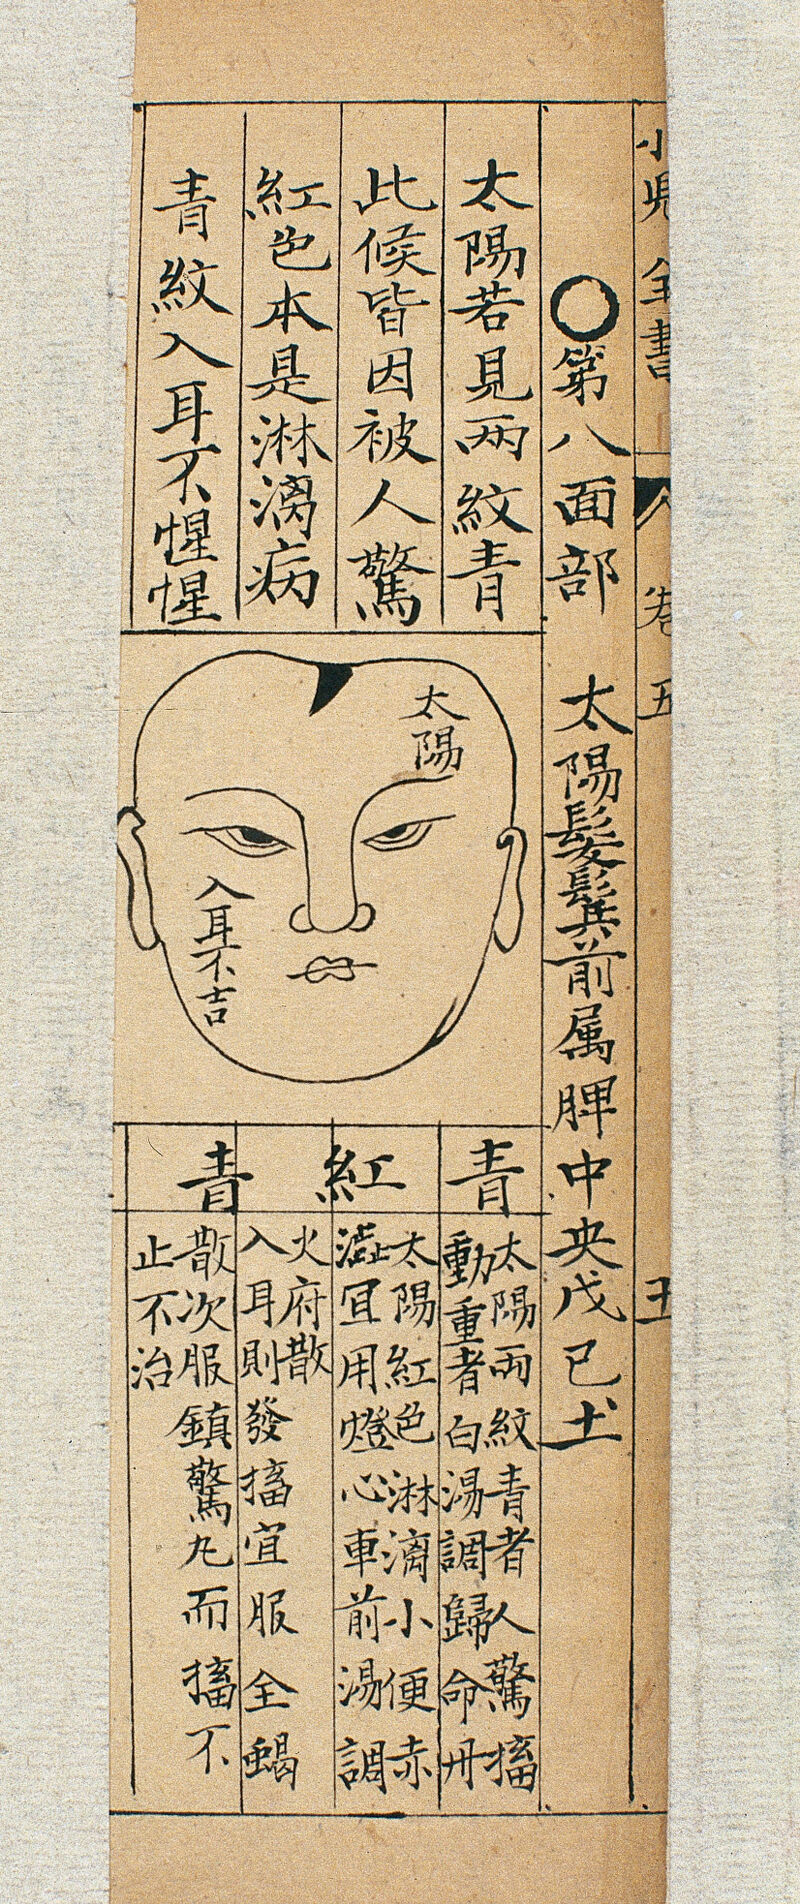 小兒全書
卷五
○第八面部 太陽髮鬢前属脾中央戊己土
太陽若見兩紋青
此候皆因被人驚
紅色本是淋漓病
青紋入耳不惺惺
太陽
入耳不吉
青
太陽兩紋青者人驚搐
動重者白湯調歸命丹
紅
太陽紅色淋漓小便赤
澁宜用燈心車前湯調
火府散
青
入耳則發搐宜服全蝎
散次服鎮驚丸而搐不
止不治